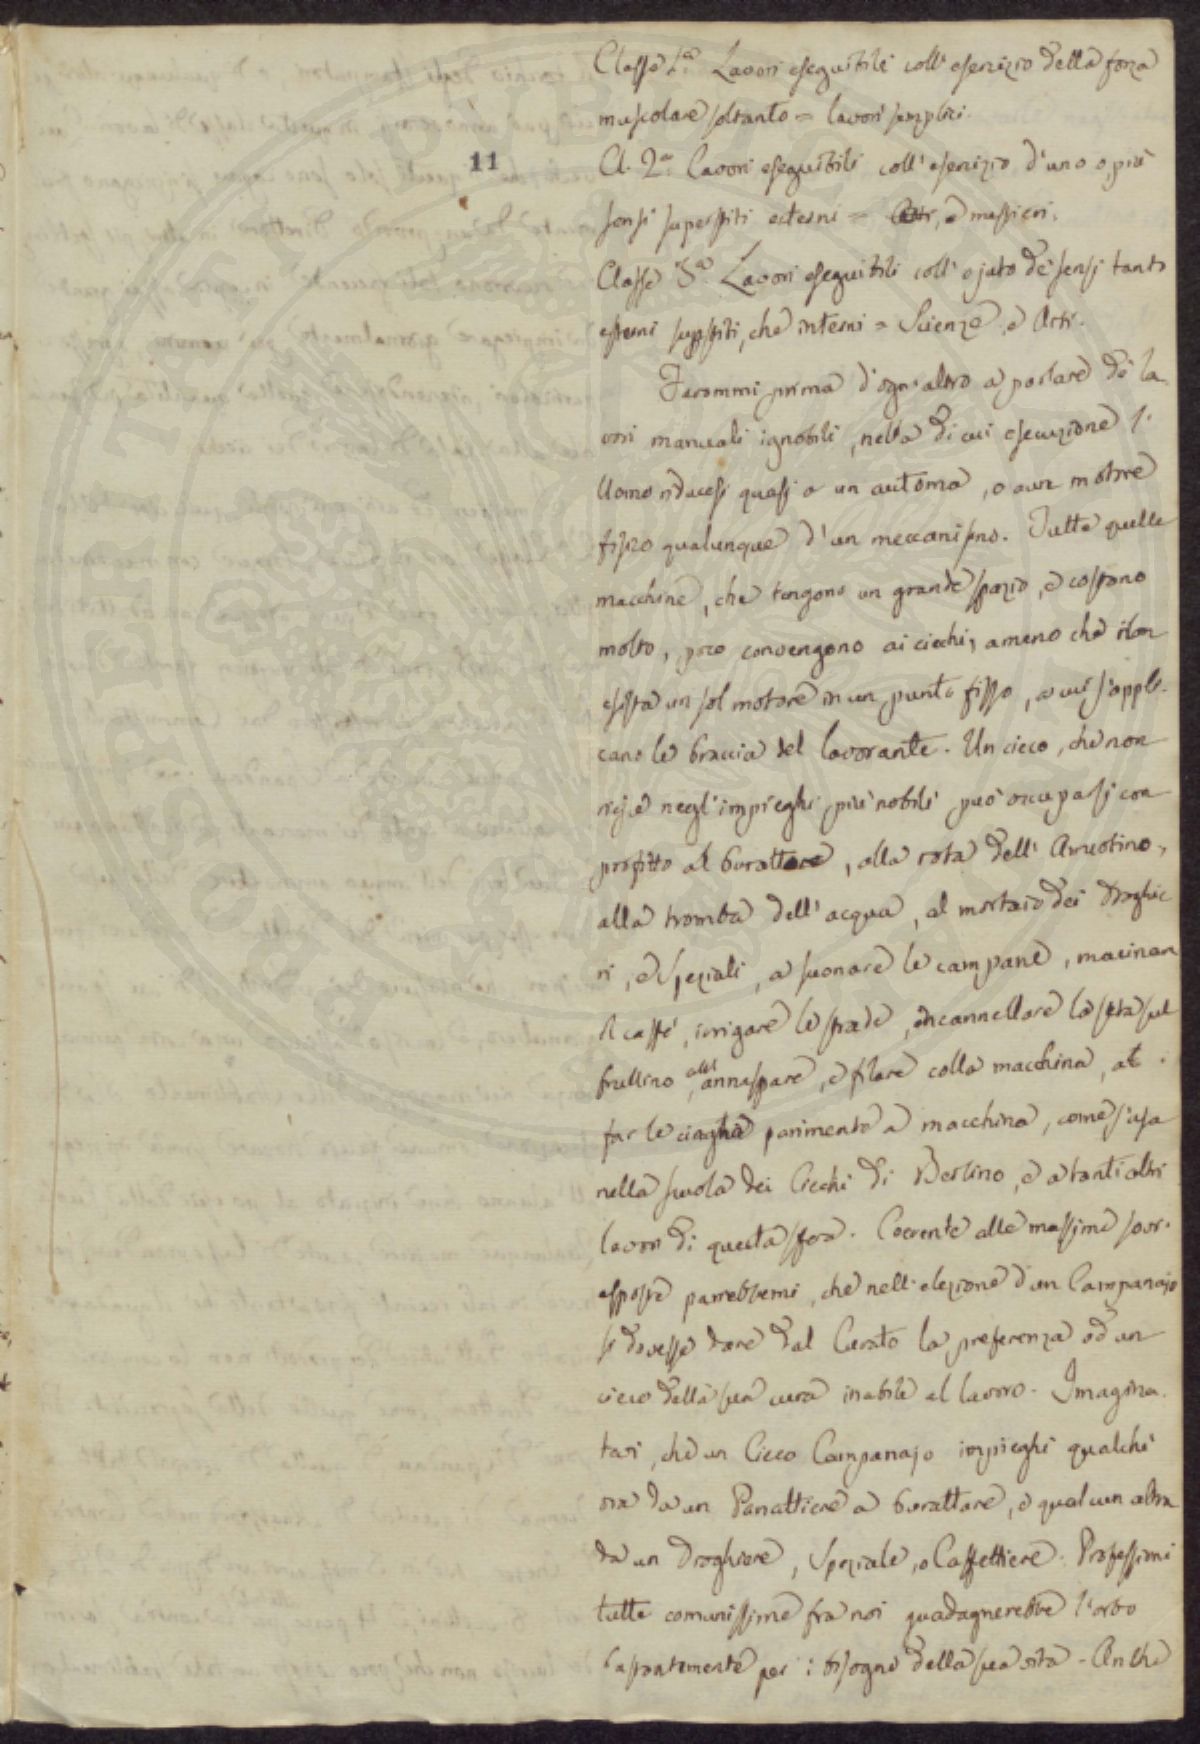 Classe 1.ª Lavori eseguibili coll'esercizio della forza
muscolare soltanto = lavori semplici.
11
Cl. 2.ª Lavori eseguibili coll'esercizio d'uno o più
sensi superstiti esterni = e mestieri.
Classe 3.ª Lavori eseguibili coll'ajuto de' sensi tanto
esterni superstiti, che interni = Scienze, e Arti.
Farommi prima d'ogn'altro a parlare de' la-
vori manuali ignobili, nella di cui esecuzione l'
Uomo riducesi quasi a un automa, o a un motore
fisico qualunque d'un meccanismo. Tutte quelle
macchine, che tengono un grande spazio, e costano
molto, poco convengono ai ciechi, a meno che non
esista un sol motore in un punto fisso, a cui s'appli-
cano le braccia del lavorante. Un cieco, che non
riesce negl'impieghi più nobili può occuparsi con
profitto al burattore, alla rota dell'Arruotino,
alla tromba dell'acqua, al mortaio dei Droghie
ri, e Speziali, a suonare le campane, macinare
il caffè, irrigare le strade, incannellare la seta sul
frullino, all'annaspare, e filare colla macchina, a
far le cinghie parimente a macchina, come s'usa
nella scuola dei Ciechi di Berlino, e a tanti altri
lavori di questa sfera. Coerente alle massime sovr-
esposte parrebbemi, che nell'elezione d'un Campanajo
si dovesse dare dal Curato la preferenza ad un
cieco della sua cura inabile al lavoro. Imagina-
tevi, che un Cieco Campanajo impieghi qualche
ora da un Panattiere a burattare, e qualcun altra
da un Droghiere, Speziale, o Caffettiere. Professioni
tutte comunissime fra noi guadagnerebbe l'orbo
bastantemente per i bisogni della sua vita. Anche